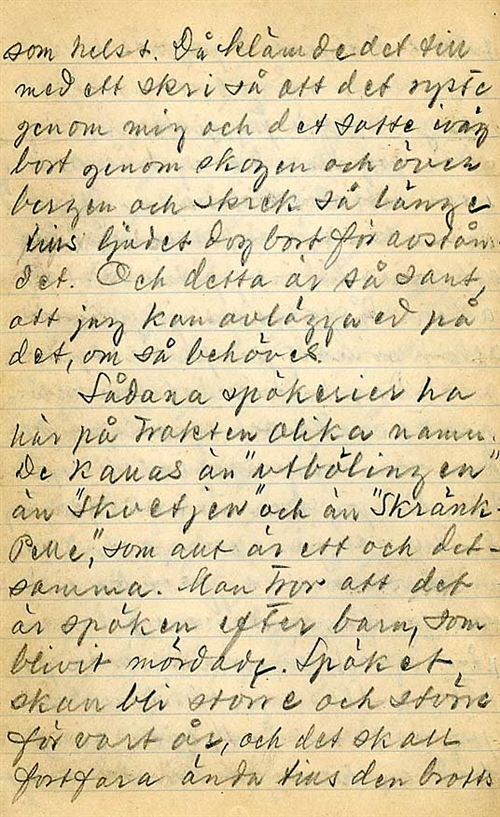 som helst. Då klämde det till
med ett skri så att det ryste
genom mig och det satte iväg
bort genom skogen och över
bergen och skrek så länge
tills ljudet dog bort för avstån-
det. Och detta är så sant,
att jag kan avlägga ed på
det, om så behöves.
Sådana spökerier ha
här på trakten olika namn.
De kallas än "utbölingen"
än "Skvetjen" och än "Skränk-
Pelle", som allt är ett och det-
samma. Man tror att det
är spöken efter barn, som
blivit mördade. Spöket
skall bli större och större
för vart år, och det skall
fortfara ända tills den brotts